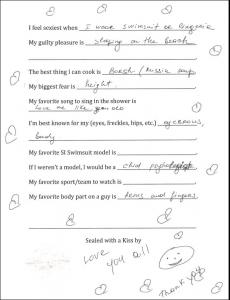 I feel sexiest when I wear swimsuit or lingerie
My guilty pleasure is sleeping on the beach
The best thing I can cook is Borsh (Russia soup
My biggest fear is height.
My favorite song to sing in the shower is
Love me like you do
I'm best known for my (eyes, freckles, hips, etc.) eyebrows,
body
My favorite SI Swimsuit model is
If I weren't a model, I would be a child
My favorite sport/team to watch is
My favorite body part on a guy is arms and fingers
Sealed with a Kiss by
Love
you all
Thank you